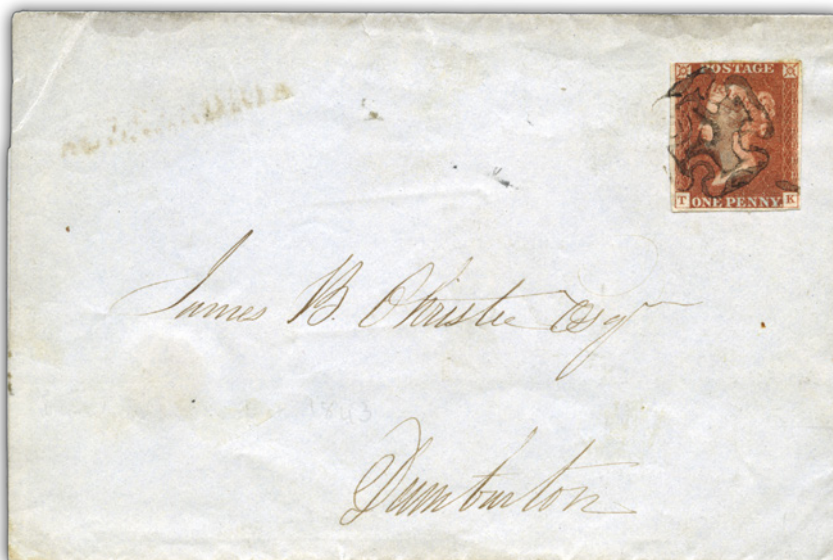 POSTAGE
T ONE PENNY K
James B. Christie Esqr
Dumbarton
1843